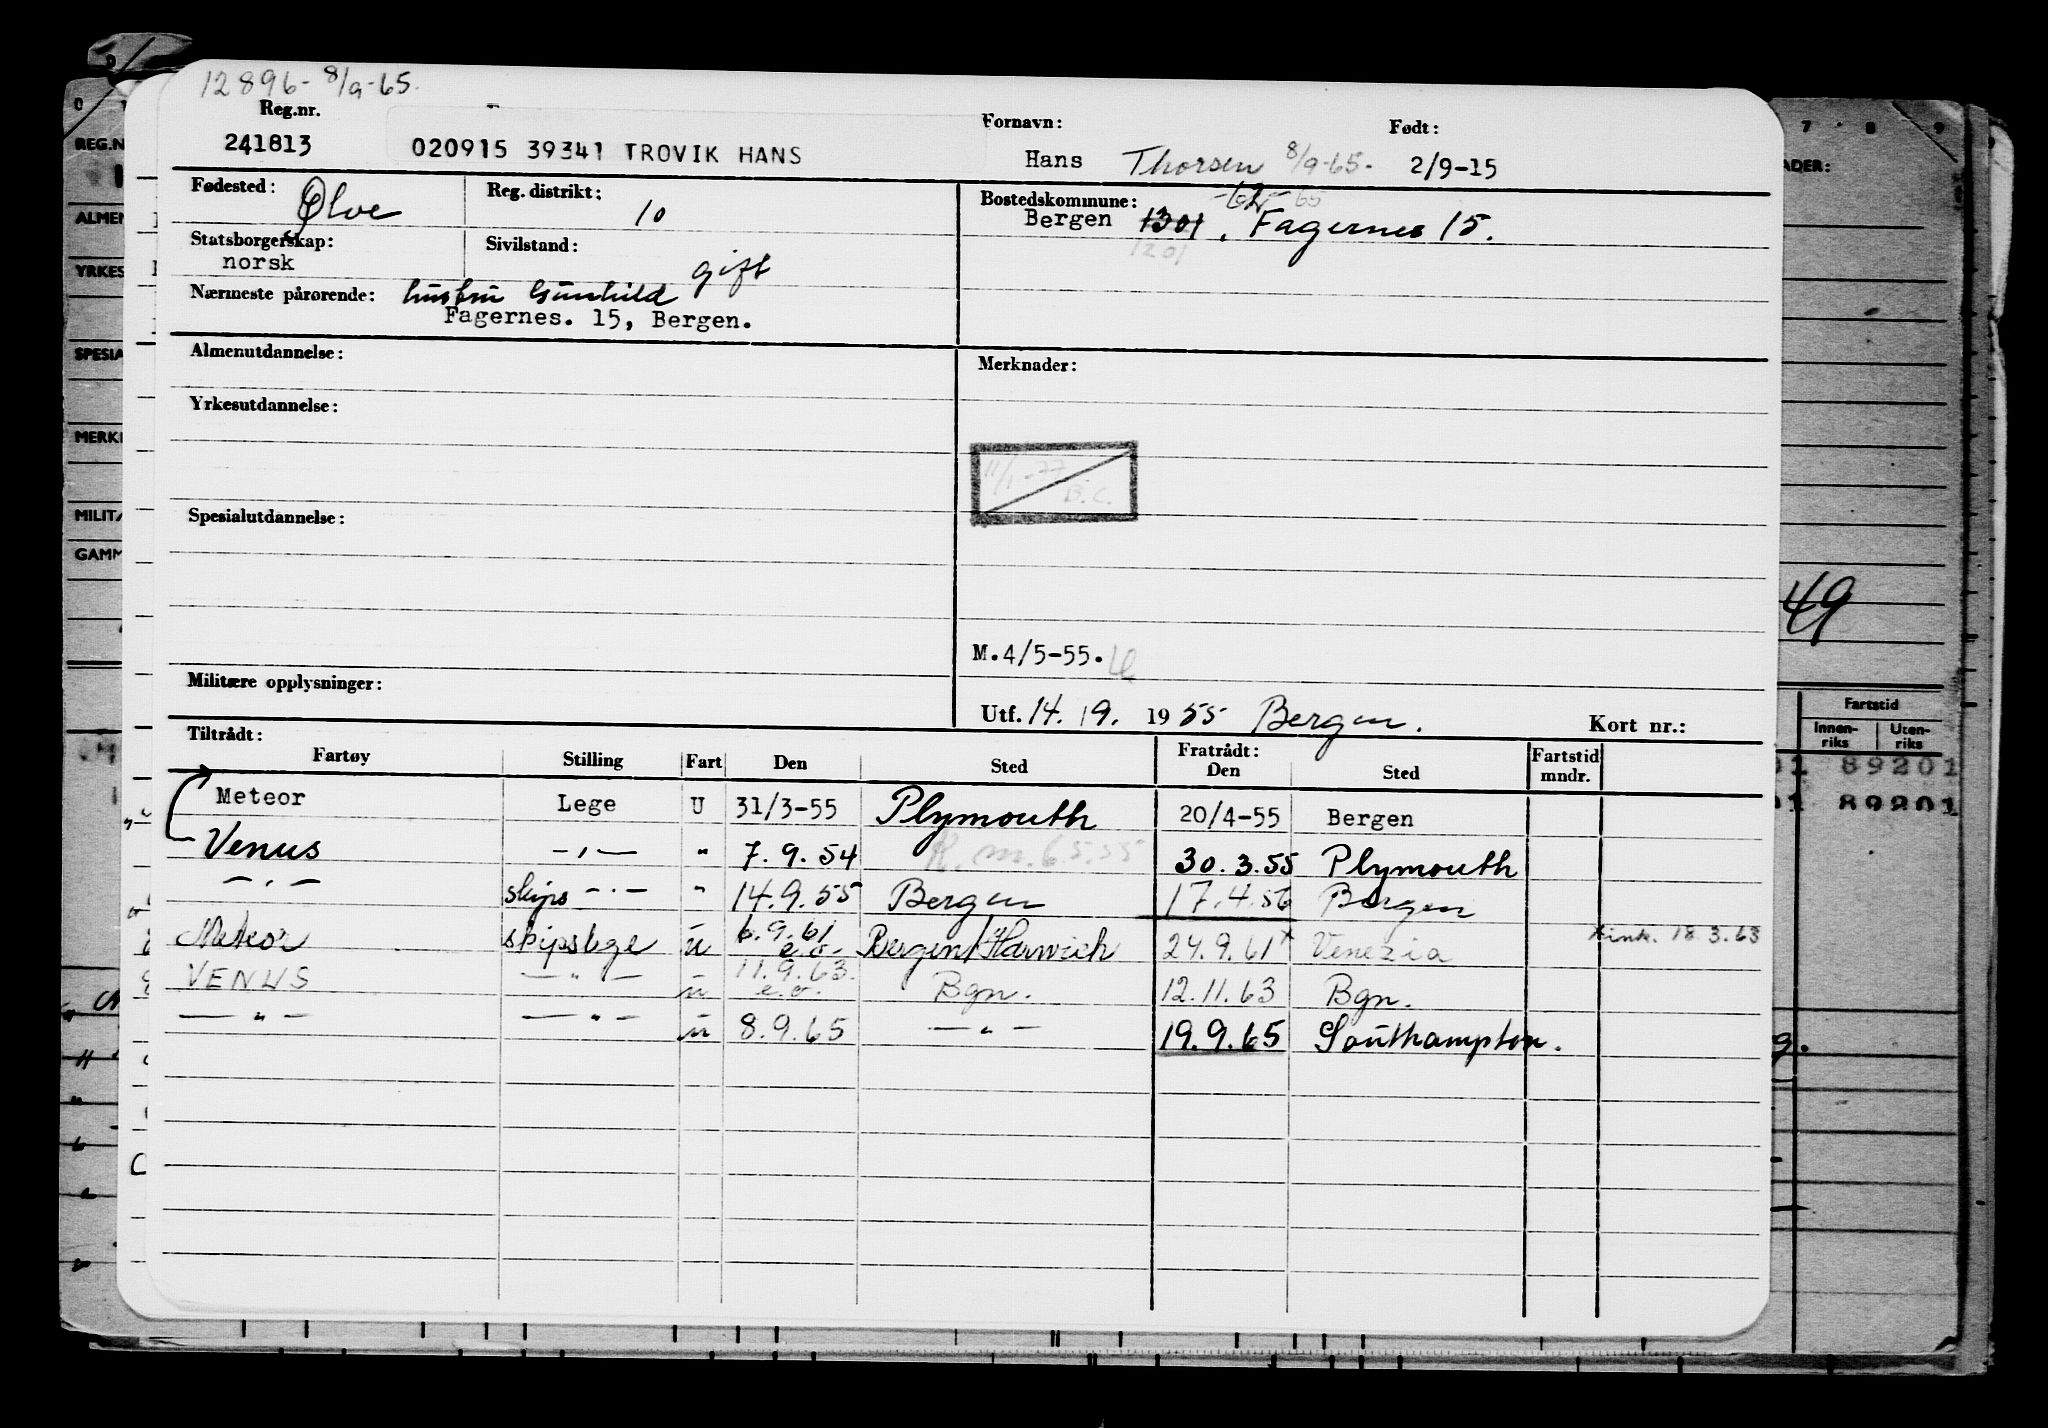 12896- 8/9-65.
Reg.nr. Fornavn: Født:
241813 020915 39341 TROVIK HANS Hans Thorsen 8/9-65- 2/9-15
Fødested: Ølve Reg. distrikt: 10 Bostedskommune: Bergen 1301, Fagernes 15.
1201
Statsborgerskap: norsk Sivilstand: gift
Nærmeste pårørende: hustru Gunhild
Fagernes. 15, Bergen.
Almenutdannelse: Merknader:
Yrkesutdannelse:
11/1-77 B.C.
Spesialutdannelse:
M.4/5-55.
Militære opplysninger:
Utf. 14. 9. 1955 Bergen. Kort nr.:
Tiltrådt: Fratrådt:
Fartøy Stilling Fart Den Sted Den Sted Fartstid mndr.
Meteor Lege U 31/3-55 Plymouth 20/4-55 Bergen
Venus -"- " 7. 9. 54 R.m. 6.5.55 30. 3. 55 Plymouth
-"- skips -"- " 14. 9. 55 Bergen 17. 4. 56 Bergen
Meteor skipslege u 6. 9. 61 e.o. Bergen/Harwich 24. 9. 61* Venezia *ink. 18.3.63
VENUS -"- u 11. 9. 63. e.o. Bgn. 12. 11. 63 Bgn.
-"- -"- u 8. 9. 65 -"- 19. 9. 65 Southampton.
REG.N
ALMEN
YRKES
SPESIA
MERK
MILIT
GAMM
7 8 9
ADER:
49
Fartstid
Innenriks Utenriks
01 89201
01 89201